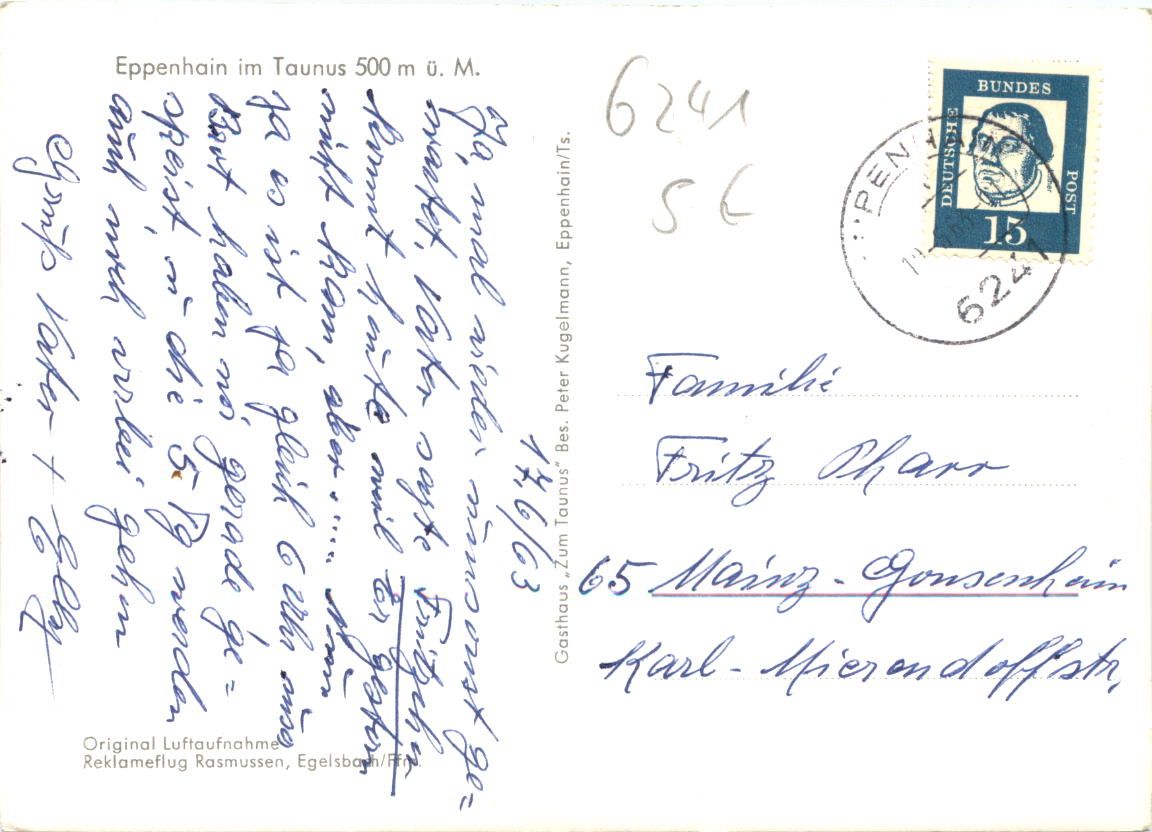 Eppenhain im Taunus 500 m ü. M.
17.6/63
Ja mal wieder umsonst ge=
wartet, Vater sagte Fritzchen
kommt heute weil Er gestern
nicht kam, aber ..... Nun
ja es ist ja gleich 6 Uhr
Brot haben wir gerade ge=
speist, u die werden
auch noch gehen
Gruß Vater + Elly
Original Luftaufnahme
Reklameflug Rasmussen, Egelsbach/Ffm.
Gasthaus „Zum Taunus" Bes. Peter Kugelmann, Eppenhain/Ts.
6241
5 €
DEUTSCHE
BUNDES
POST
15
EPPENHAIN
6241
Familie
Fritz Pharr
65 Mainz-Gonsenheim
Karl-Mierendoffstr.